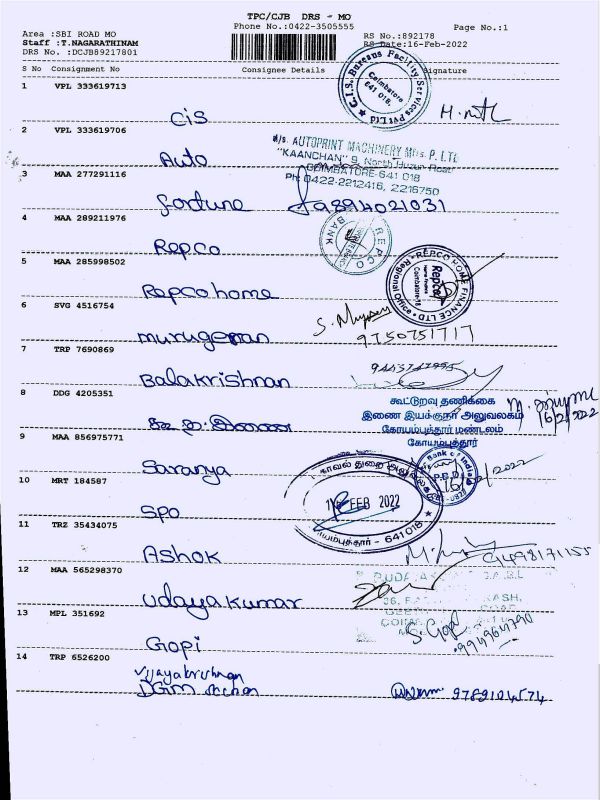 TPC/CJB DRS - MO
Phone No.:0422-3505555
Page No.:1
Area :SBI ROAD MO
RS No.:892178
Staff :T.NAGARATHINAM
RS Date:16-Feb-2022
DRS No. :DCJB89217801
S No Consignment No Consignee Details Signature
1 VPL 333619713
Cis
C.I.S. Bureaus Facility Services Pvt Ltd
Coimbatore 641 018.
2 VPL 333619706
Auto
M/s. AUTOPRINT MACHINERY P. LTD
"KAANCHAN" 9, North Huzur Road
COIMBATORE-641 018
Ph: 0422-2212416, 2216750
3 MAA 277291116
fortune 9894021031
4 MAA 289211976
Repco
REPCO BANK
5 MAA 285998502
Repcohome
REPCO HOME FINANCE LTD
Regional Office
Repco
Coimbatore-18
6 SVG 4516754
murugesan
9750751717
7 TRP 7690869
Balakrishnan
8 DDG 4205351
கூட்டுறவு தணிக்கை
இணை இயக்குநர் அலுவலகம்
கோயம்புத்தூர் மண்டலம்
கோயம்புத்தூர்
16/2/2022
9 MAA 856975771
Saranya
Bank of India
16/2/2022
10 MRT 184587
Spo
காவல் துறை
FEB 2022
641018
11 TRZ 35434075
Ashok
9498171155
12 MAA 565298370
Udayakumar
13 MPL 351692
Gopi
S. Gopi
14 TRP 6526200
Vijayakrishnan
DGM
9789104574